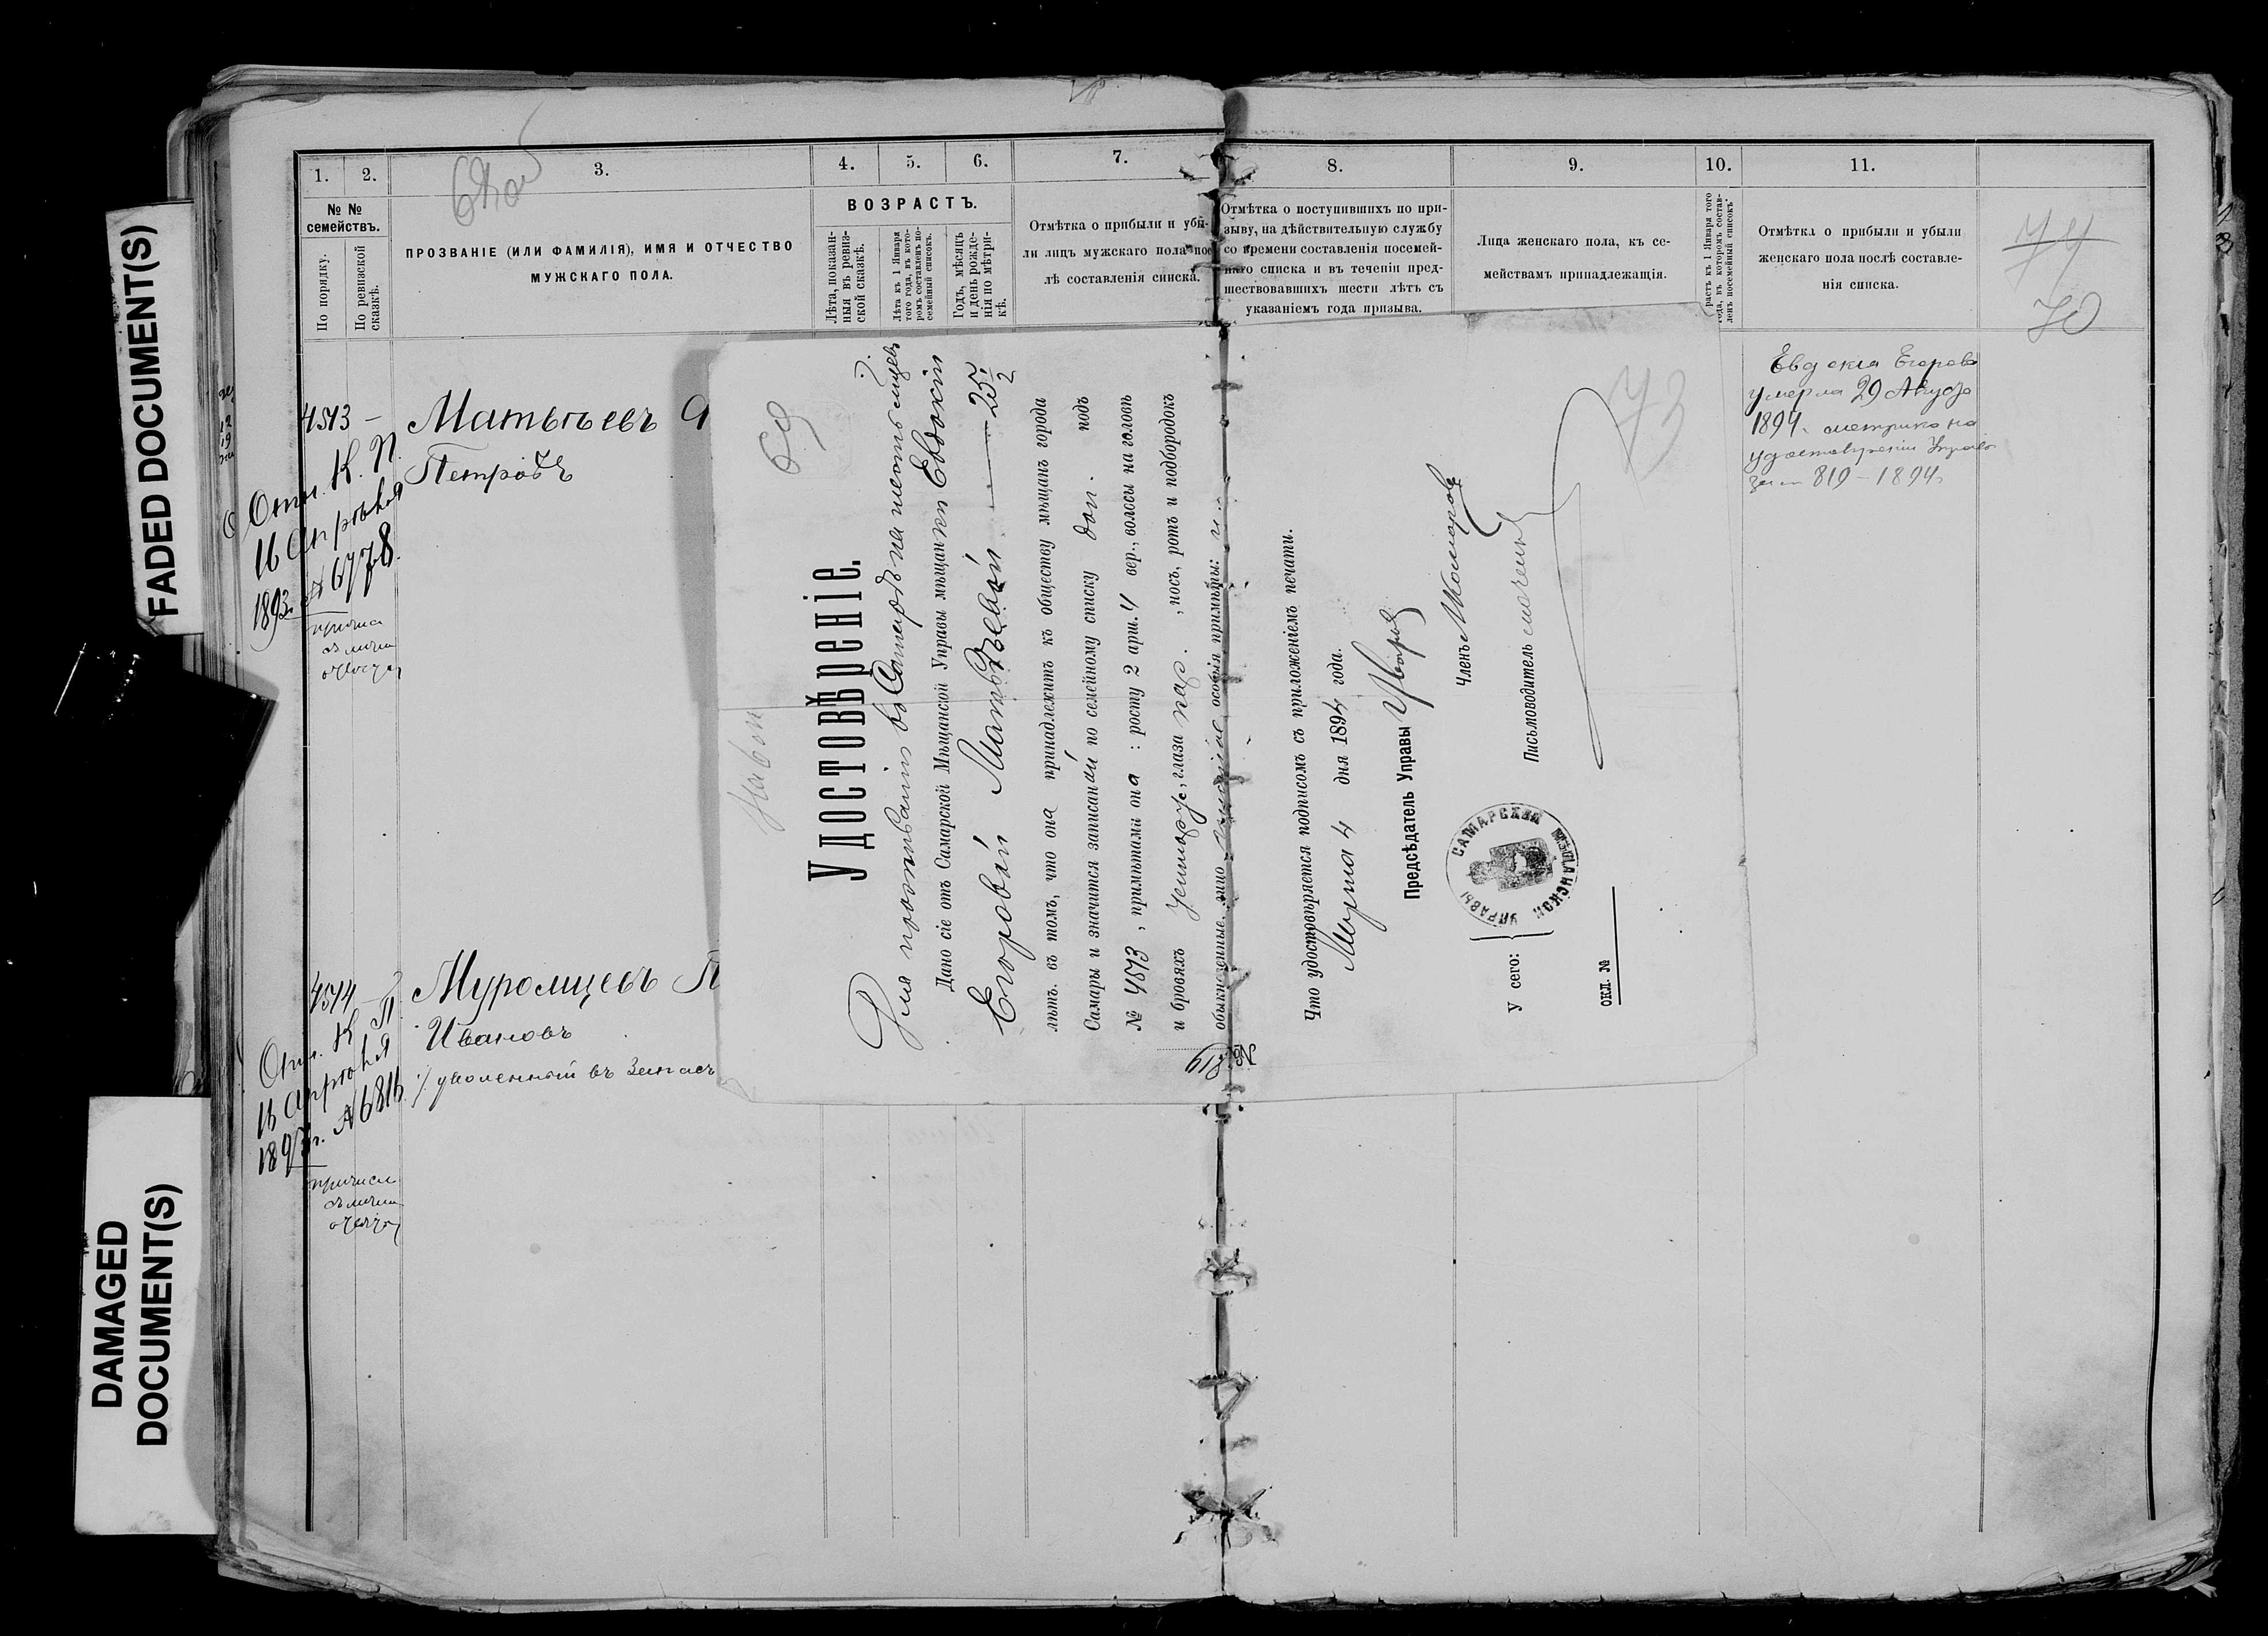 FADED DOCUMENT(S)
DAMAGED
DOCUMENT(S)
1.
2.
3.
4.
5.
6.
7.
№ №
семействъ.
По порядку.
По ревизской
сказкѣ.
ПРОЗВАНІЕ (ИЛИ ФАМИЛІЯ), ИМЯ И ОТЧЕСТВО
МУЖСКАГО ПОЛА.
ВОЗРАСТЪ.
Лѣта, показан-
ныя въ ревиз-
ской сказкѣ.
Лѣта къ 1 Января
того года, въ кото-
ромъ составленъ по-
семейный списокъ.
Годъ, мѣсяцъ
и день рожде-
нія по метри-
кѣ.
Отмѣтка о прибыли и убы-
ли лицъ мужскаго пола пос-
лѣ составленія списка.
4573 –
Матвѣевъ
Петровъ
Отн. К. П.
16 Апрѣля
1893 № 6778
4574 –
Муромцевъ
Ивановъ
уволенный въ Запасъ
Отн. К. П.
16 Апрѣля
189 г. № 6816
69
Удостовѣреніе.
Для проживанія въ Самарѣ на шесть мѣсяцевъ
Дано сіе отъ Самарской Мѣщанской Управы мѣщанкѣ Евдокіи
Егоровой Матвѣевой — 25 1/2
лѣтъ. въ томъ, что она принадлежитъ къ обществу мѣщанъ города
Самары и значится записанной по семейному списку доп. подъ
№ 4573, примѣтами она: росту 2 арш. 4 вер., волосы на головѣ
и бровяхъ , глаза кар. , носъ, ротъ и подбородокъ
обыкновенные, лицо особыя примѣты:
№ 819
Что удостовѣряется подписомъ съ приложеніемъ печати.
Марта 4 дня 1894 года.
Предсѣдатель Управы Уваровъ
Членъ
Письмоводитель
У сего:
САМАРСКАЯ МѢЩАНСКОЙ УПРАВЫ
окл. №
73
8.
9.
10.
11.
Отмѣтка о поступившихъ по при-
зыву, на дѣйствительную службу
со времени составленія посемей-
наго списка и въ теченіи пред-
шествовавшихъ шести лѣтъ съ
указаніемъ года призыва.
Лица женскаго пола, къ се-
мействамъ принадлежащія.
растъ къ 1 Января того
года, въ которомъ состав-
ленъ посемейный списокъ
Отмѣтка о прибыли и убыли
женскаго пола послѣ составле-
нія списка.
74
70
Евдокія Егорова
умерла 29 Августа
1894 метрика на
удостовѣреніи Управы
за № 819 – 1894